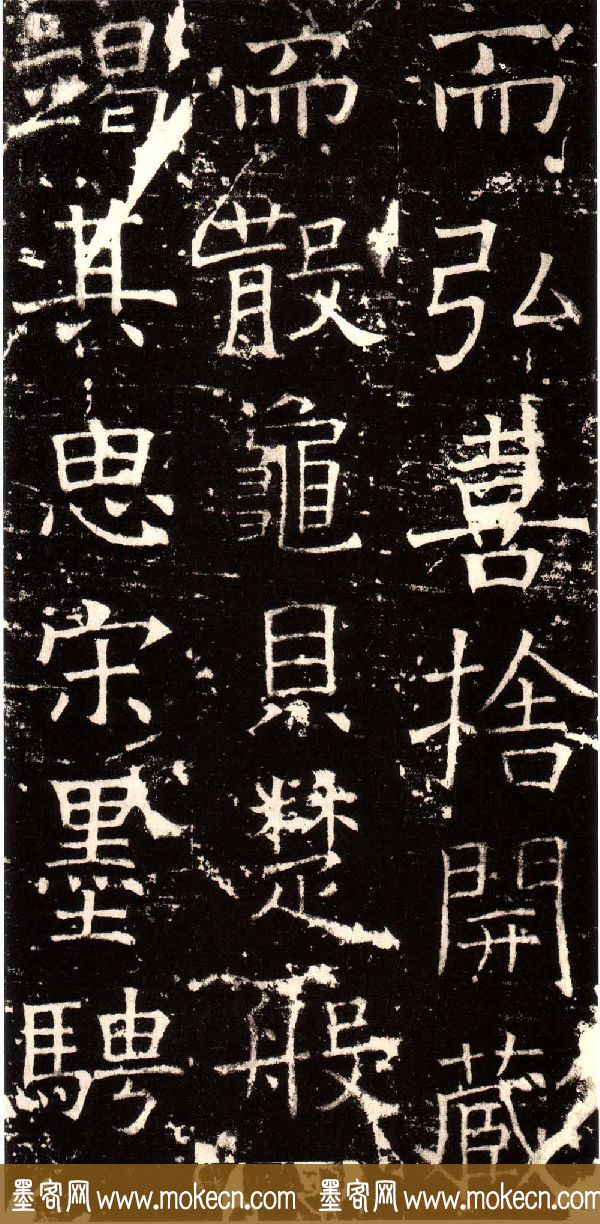 而弘喜捨開藏
而散龜貝楚般
竭其思宋墨騁
墨客网 www.mokecn.com 墨客网 www.mokecn.com